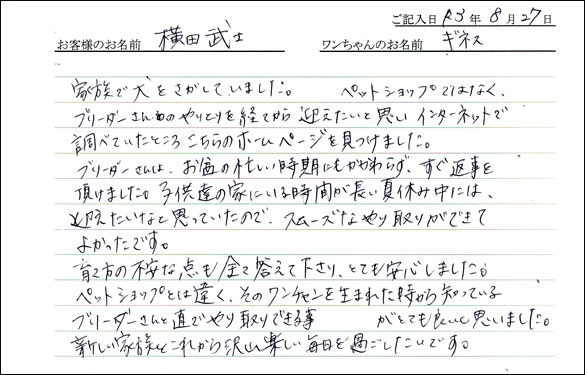 ご記入日 R3年 8月 27日
お客様のお名前 横田 武士 ワンちゃんのお名前 ギネス
家族で犬をさがしていました。 ペットショップではなく、
ブリーダーさんとのやりとりを経てから 迎えたいと思い インターネットで
調べていたところ こちらのホームページを見つけました。
ブリーダーさんは、お盆の忙しい時期にもかかわらず、すぐ返事を
頂けました。子供達の家にいる時間が長い夏休み中には、
迎えたいなと思っていたので、スムーズなやり取りができて
よかったです。
育て方の不安な点も全て答えて下さり、とても安心しました。
ペットショップとは違く、そのワンチャンを生まれた時から知っている
ブリーダーさんと直でやり取りできる事 がとても良いと思いました。
新しい家族とこれから沢山楽しい毎日を過ごしたいです。